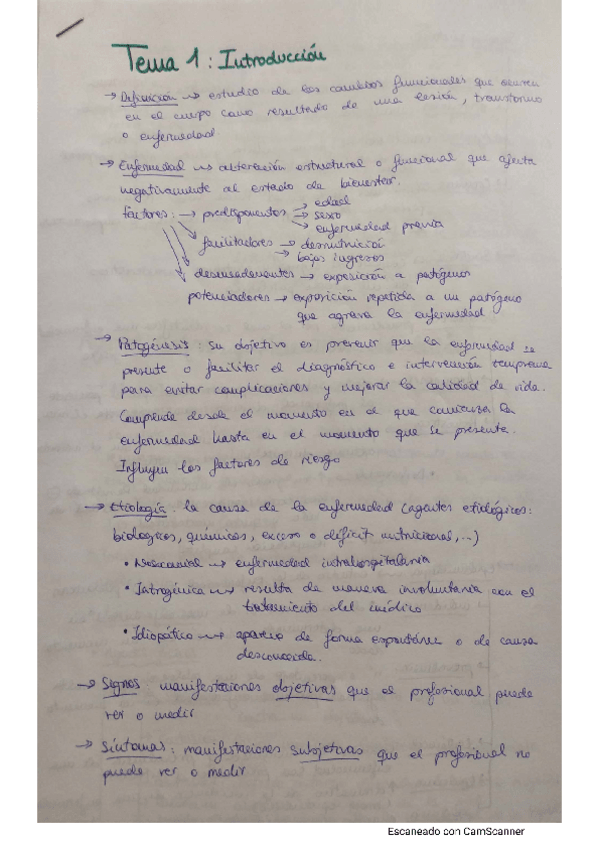 Tema 1: Introducción
→ Definición ⤳ estudio de los cambios funcionales que ocurren
en el cuerpo como resultado de una lesión, transtorno
o enfermedad.
→ Enfermedad ⤳ alteración estructural o funcional que afecta
negativamente al estado de bienestar.
Factores: → predisponentes → edad
→ sexo
→ enfermedad previa
facilitadores → desnutrición
→ bajos ingresos
desencadenantes → exposición a patógenos
potenciadores → exposición repetida a un patógeno
que agrava la enfermedad
→ Patogénesis: su objetivo es prevenir que la enfermedad se
presente o facilitar el diagnóstico e intervención temprana
para evitar complicaciones y mejorar la calidad de vida.
Comprende desde el momento en el que comienza la
enfermedad hasta en el momento que se presenta.
Influyen los factores de riesgo
→ Etiología: la causa de la enfermedad (agentes etiológicos:
biologicos, químicos, exceso o déficit nutricional, ...)
• Nosocomial ⤳ enfermedad intrahospitalaria
• Iatrogénica ⤳ resulta de manera involuntaria con el
tratamiento del médico
• Idiopático ⤳ aparece de forma espontánea o de causa
desconocida.
→ Signos: manifestaciones objetivas que el profesional puede
ver o medir
→ Síntomas: manifestaciones subjetivas que el profesional no
puede ver o medir
Escaneado con CamScanner